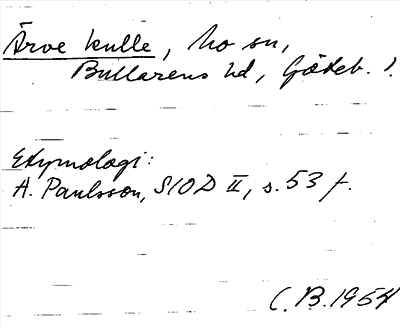 Ärve kulle, Mo sn,
Bullarens hd, Göteb. l.
Etymologi:
A. Paulsson, SIOD II, s. 53 f.
C. B. 1954